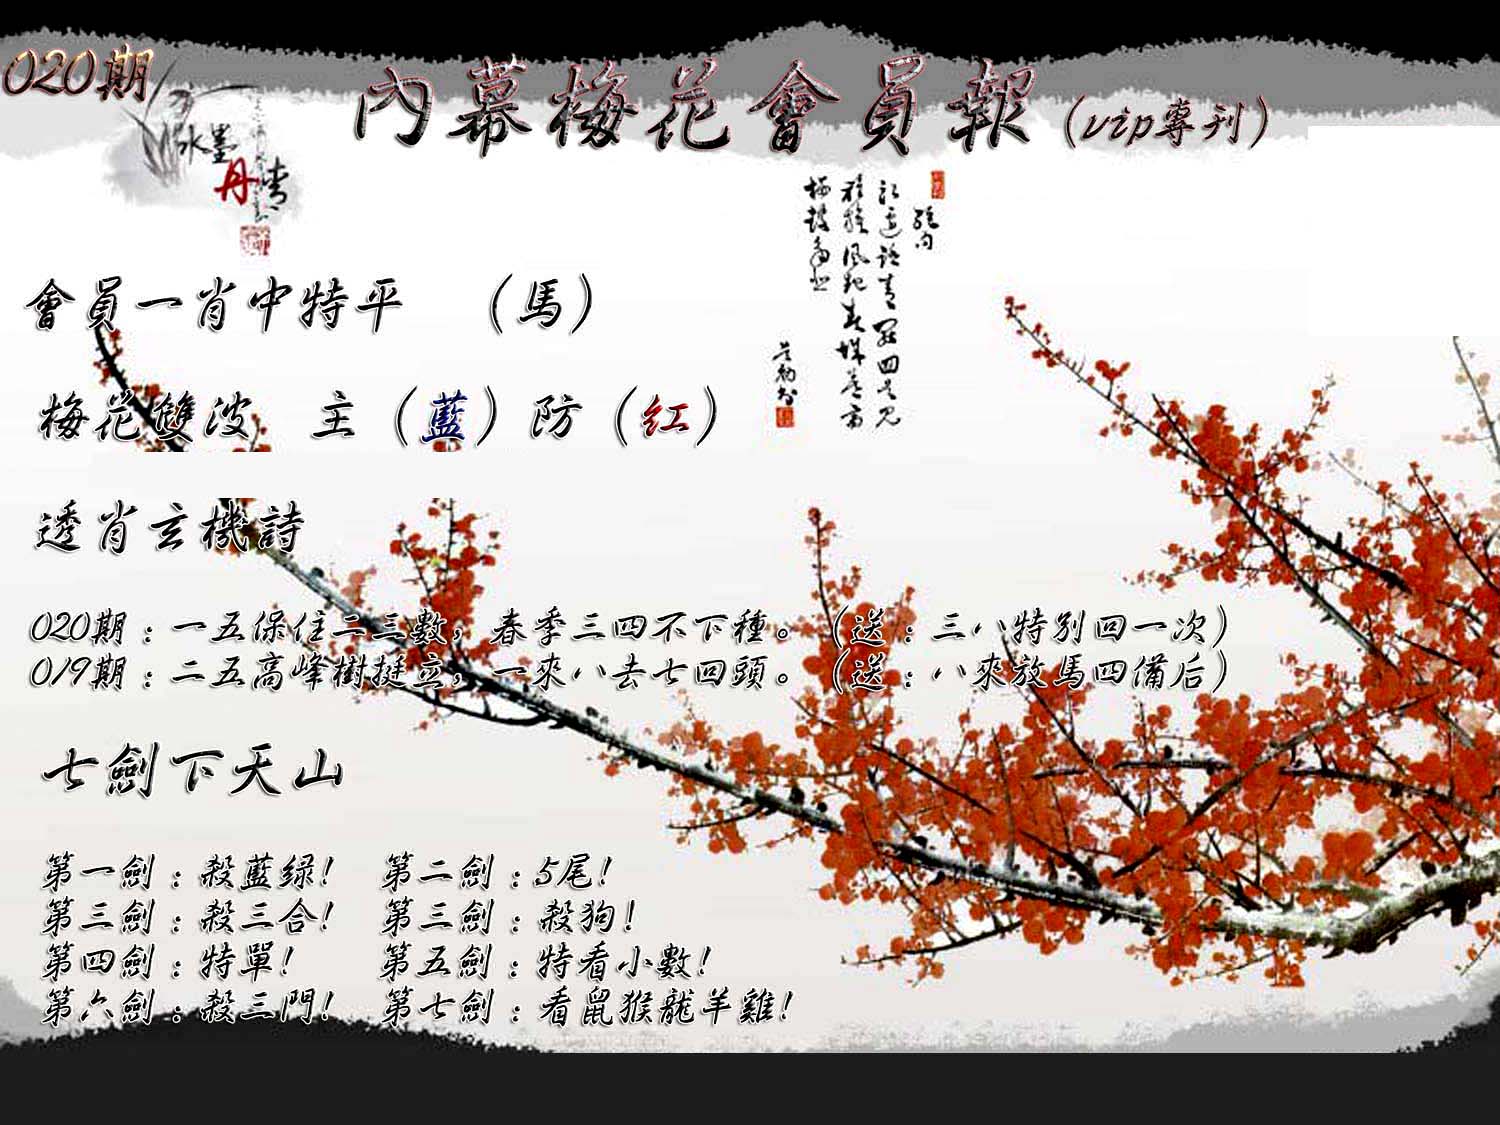 020期
內幕梅花會員報(vip專刊)
水墨
丹青
會員一肖中特平 (馬)
梅花雙波 主(藍)防(红)
透肖玄機詩
020期:一五保住二三數,春季三四不下種。(送:三八特别回一次)
019期:二五高峰樹挺立,一來八去七回頭。(送:八來放馬四備后)
七劍下天山
第一劍:殺藍绿! 第二劍:5尾!
第三劍:殺三合! 第三劍:殺狗!
第四劍:特單! 第五劍:特看小數!
第六劍:殺三門! 第七劍:看鼠猴龍羊雞!